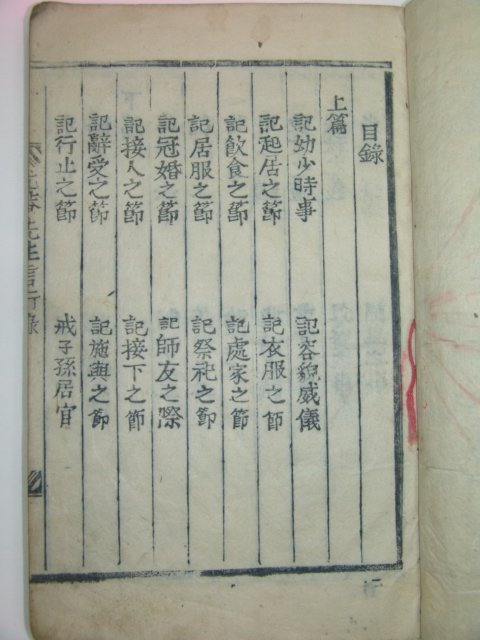 目錄
上篇
記幼少時事 記容貌威儀
記起居之節 記衣服之節
記飲食之節 記處家之節
記居服之節 記祭祀之節
記冠婚之節 記師友之際
記接人之節 記接下之節
記辭愛之節 記施與之節
記行止之節 戒子孫居官
先生言行錄